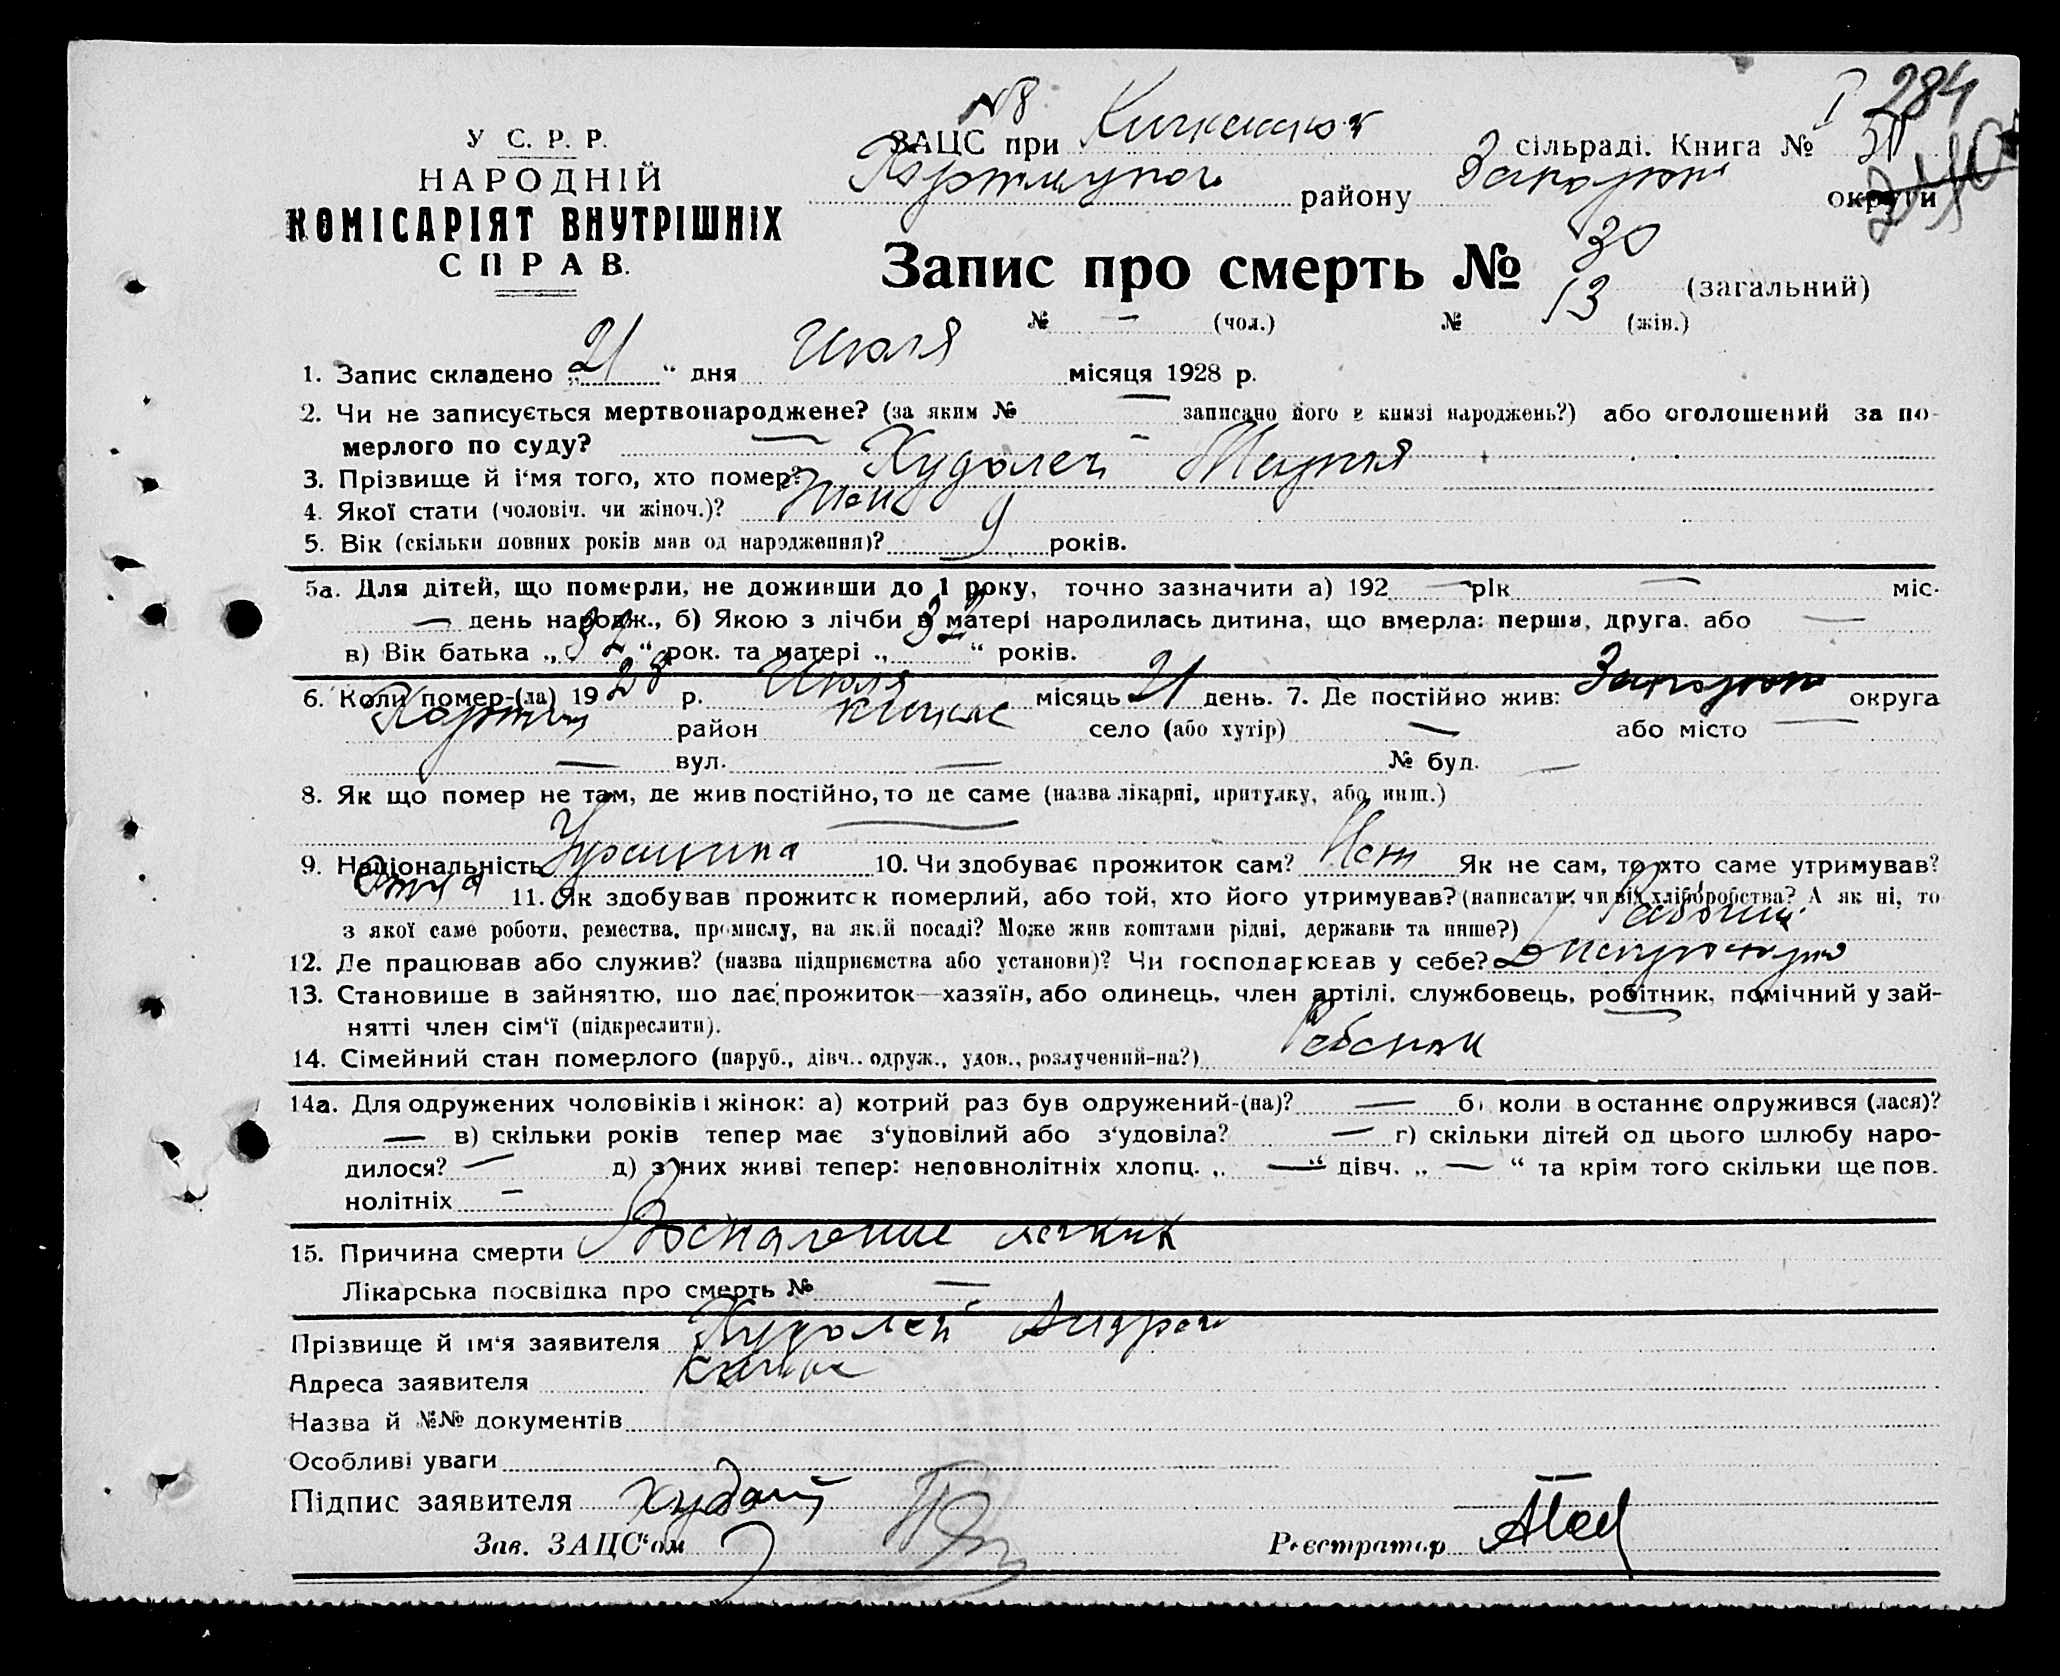 №8
284
У С. Р. Р.
НАРОДНІЙ
КОМІСАРІЯТ ВНУТРІШНІХ
СПРАВ.
ЗАЦС при Кичкаськ сільраді. Книга №
району Запорізьк округи
Запис про смерть № 30 (загальний)
№ — (чол.) № 13 (жін.)
1. Запис складено „21“ дня Июля місяця 1928 р.
2. Чи не записується мертвонароджене? (за яким № — записано його в книзі народжень?) або оголошений за по-
мерлого по суду? — —
3. Прізвище й і‘мя того, хто помер? Худолей Мария
4. Якої стати (чоловіч. чи жіноч.)? Жен
5. Вік (скільки повних років мав од народження)? 9 років.
5а. Для дітей, що померли, не доживши до 1 року, точно зазначити а) 192 — рік — міс.
— день народж., б) Якою з лічби в матері народилась дитина, що вмерла: перша, друга. або —
в) Вік батька „32“ рок. та матері „32“ років.
6. Коли помер-(ла) 1928 р. Июля місяць 21 день. 7. Де постійно жив: Запорізьк округа
Хортиц район Кичкас село (або хутір) — або місто —
— вул. — № буд. —
8. Як що помер не там, де жив постійно, то де саме (назва лікарні, притулку, або инш.)
—
9. Національність Украинка 10. Чи здобуває прожиток сам? Нет Як не сам, то хто саме утримував?
Отца 11. Як здобував прожиток померлий, або той, хто його утримував? (написати: чи від хліборобства? А як ні, то
з якої саме роботи, ремества, промислу, на якій посаді? Може жив коштами рідні, держави та инше?) Рабочий
12. Де працював або служив? (назва підприємства або установи)? Чи господарював у себе?
13. Становище в зайняттю, що дає прожиток—хазяїн, або одинець, член артілі, службовець, робітник, помічний у зай-
нятті член сім‘ї (підкреслити).
14. Сімейний стан померлого (паруб., дівч.. одруж., удов., розлучений-на?) Ребенок
14а. Для одружених чоловіків і жінок: а) котрий раз був одружений-(на)? — б) коли в останнє одружився (лася)?
— в) скільки років тепер має з‘удовілий або з‘удовіла? — г) скільки дітей од цього шлюбу наро-
дилося? — д) з них живі тепер: неповнолітніх хлопц. „ — “ дівч. „ — “ та крім того скільки ще пов.
нолітніх —
15. Причина смерти Воспаление легких
Лікарська посвідка про смерть № —
Прізвище й ім‘я заявителя Худолей Андрей
Адреса заявителя Кичкас
Назва й №№ документів
Особливі уваги
Підпис заявителя Худолий
Зав. ЗАЦС‘ом Реєстратор